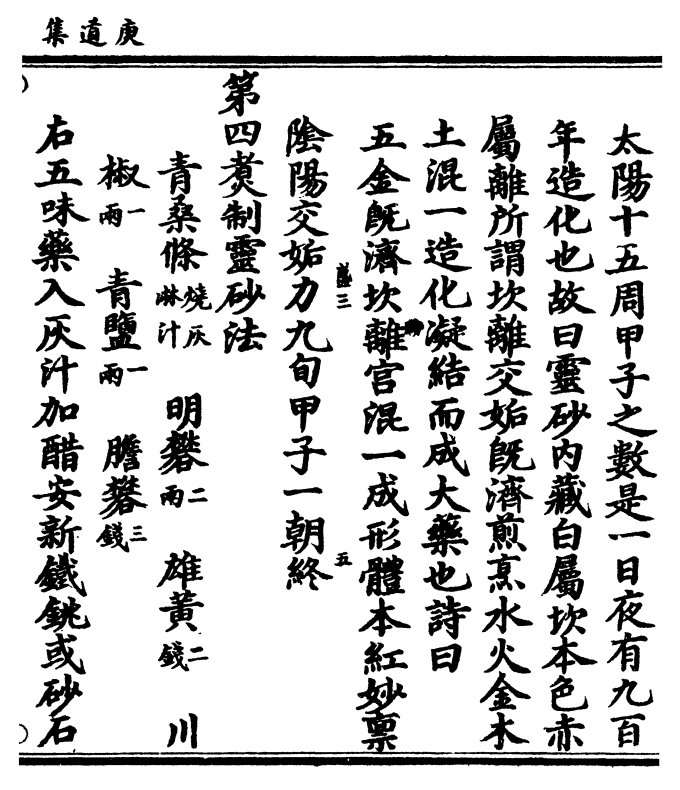 庚道集
太陽十五周甲子之數是一日夜有九百
年造化也故曰靈砂內藏白屬坎本色赤
屬離所謂坎離交姤既濟煎烹水火金木
土混一造化凝結而成大藥也詩曰
五金既濟坎離宮混一成形體本紅妙票
陰陽交姤力九旬甲子一朝終
第四煑制靈砂法
青桑條燒灰淋汁 明礬二兩 雄黃二錢 川
椒一兩 青鹽一兩 膽礬三錢
右五味藥入灰汁加醋安新鐵銚或砂石
三
五